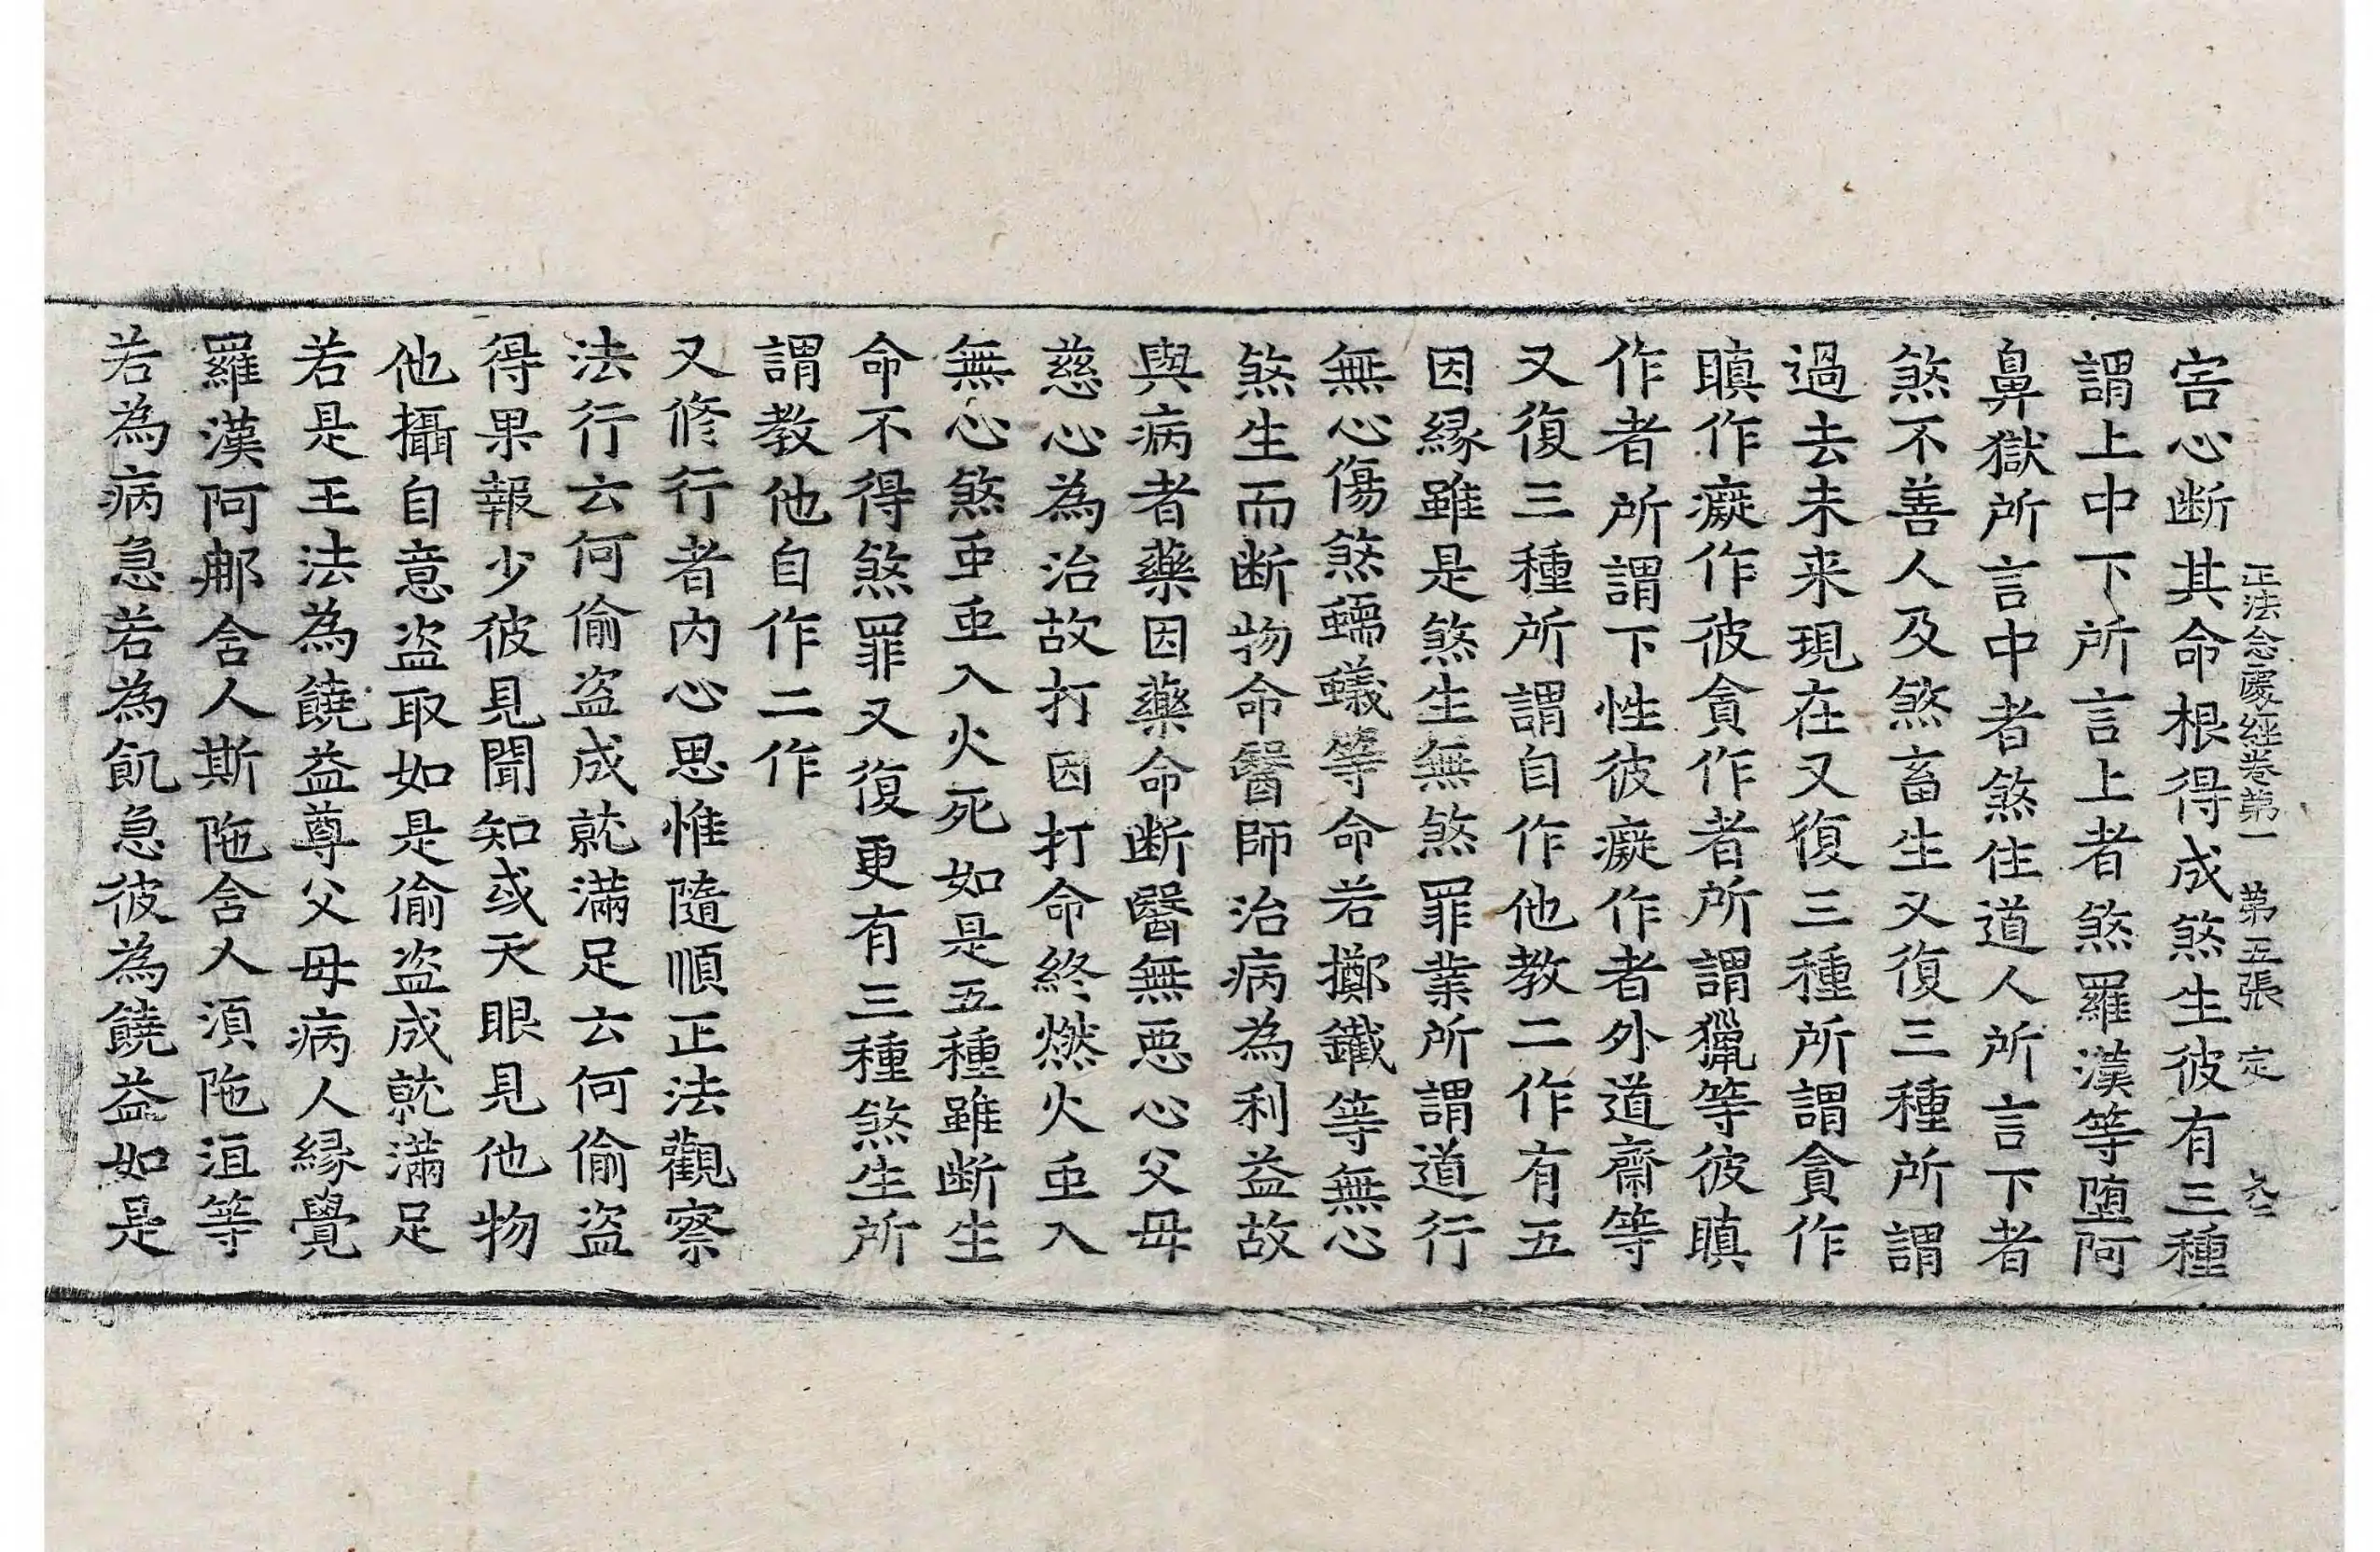 正法念處經卷第一 第五張 定
害心断其命根得成煞生彼有三種
謂上中下所言上者煞羅漢等堕阿
鼻獄所言中者煞住道人所言下者
煞不善人及煞畜生又復三種所謂
過去未来現在又復三種所謂貪作
瞋作癡作彼貪作者所謂獵等彼瞋
作者所謂下性彼癡作者外道齋等
又復三種所謂自作他教二作有五
因縁雖是煞生無煞罪業所謂道行
無心傷煞蠕蟻等命若擲鐵等無心
煞生而断物命醫師治病為利益故
與病者藥因藥命断醫無惡心父母
慈心為治故打因打命終燃火虫入
無心煞虫虫入火死如是五種雖断生
命不得煞罪又復更有三種煞生所
謂教他自作二作
又修行者内心思惟隨順正法觀察
法行云何偷盗成就滿足云何偷盗
得果報少彼見聞知或天眼見他物
他攝自意盗取如是偷盗成就滿足
若是王法為饒益尊父母病人縁覺
羅漢阿那含人斯陁含人須陁洹等
若為病急若為飢急彼為饒益如是